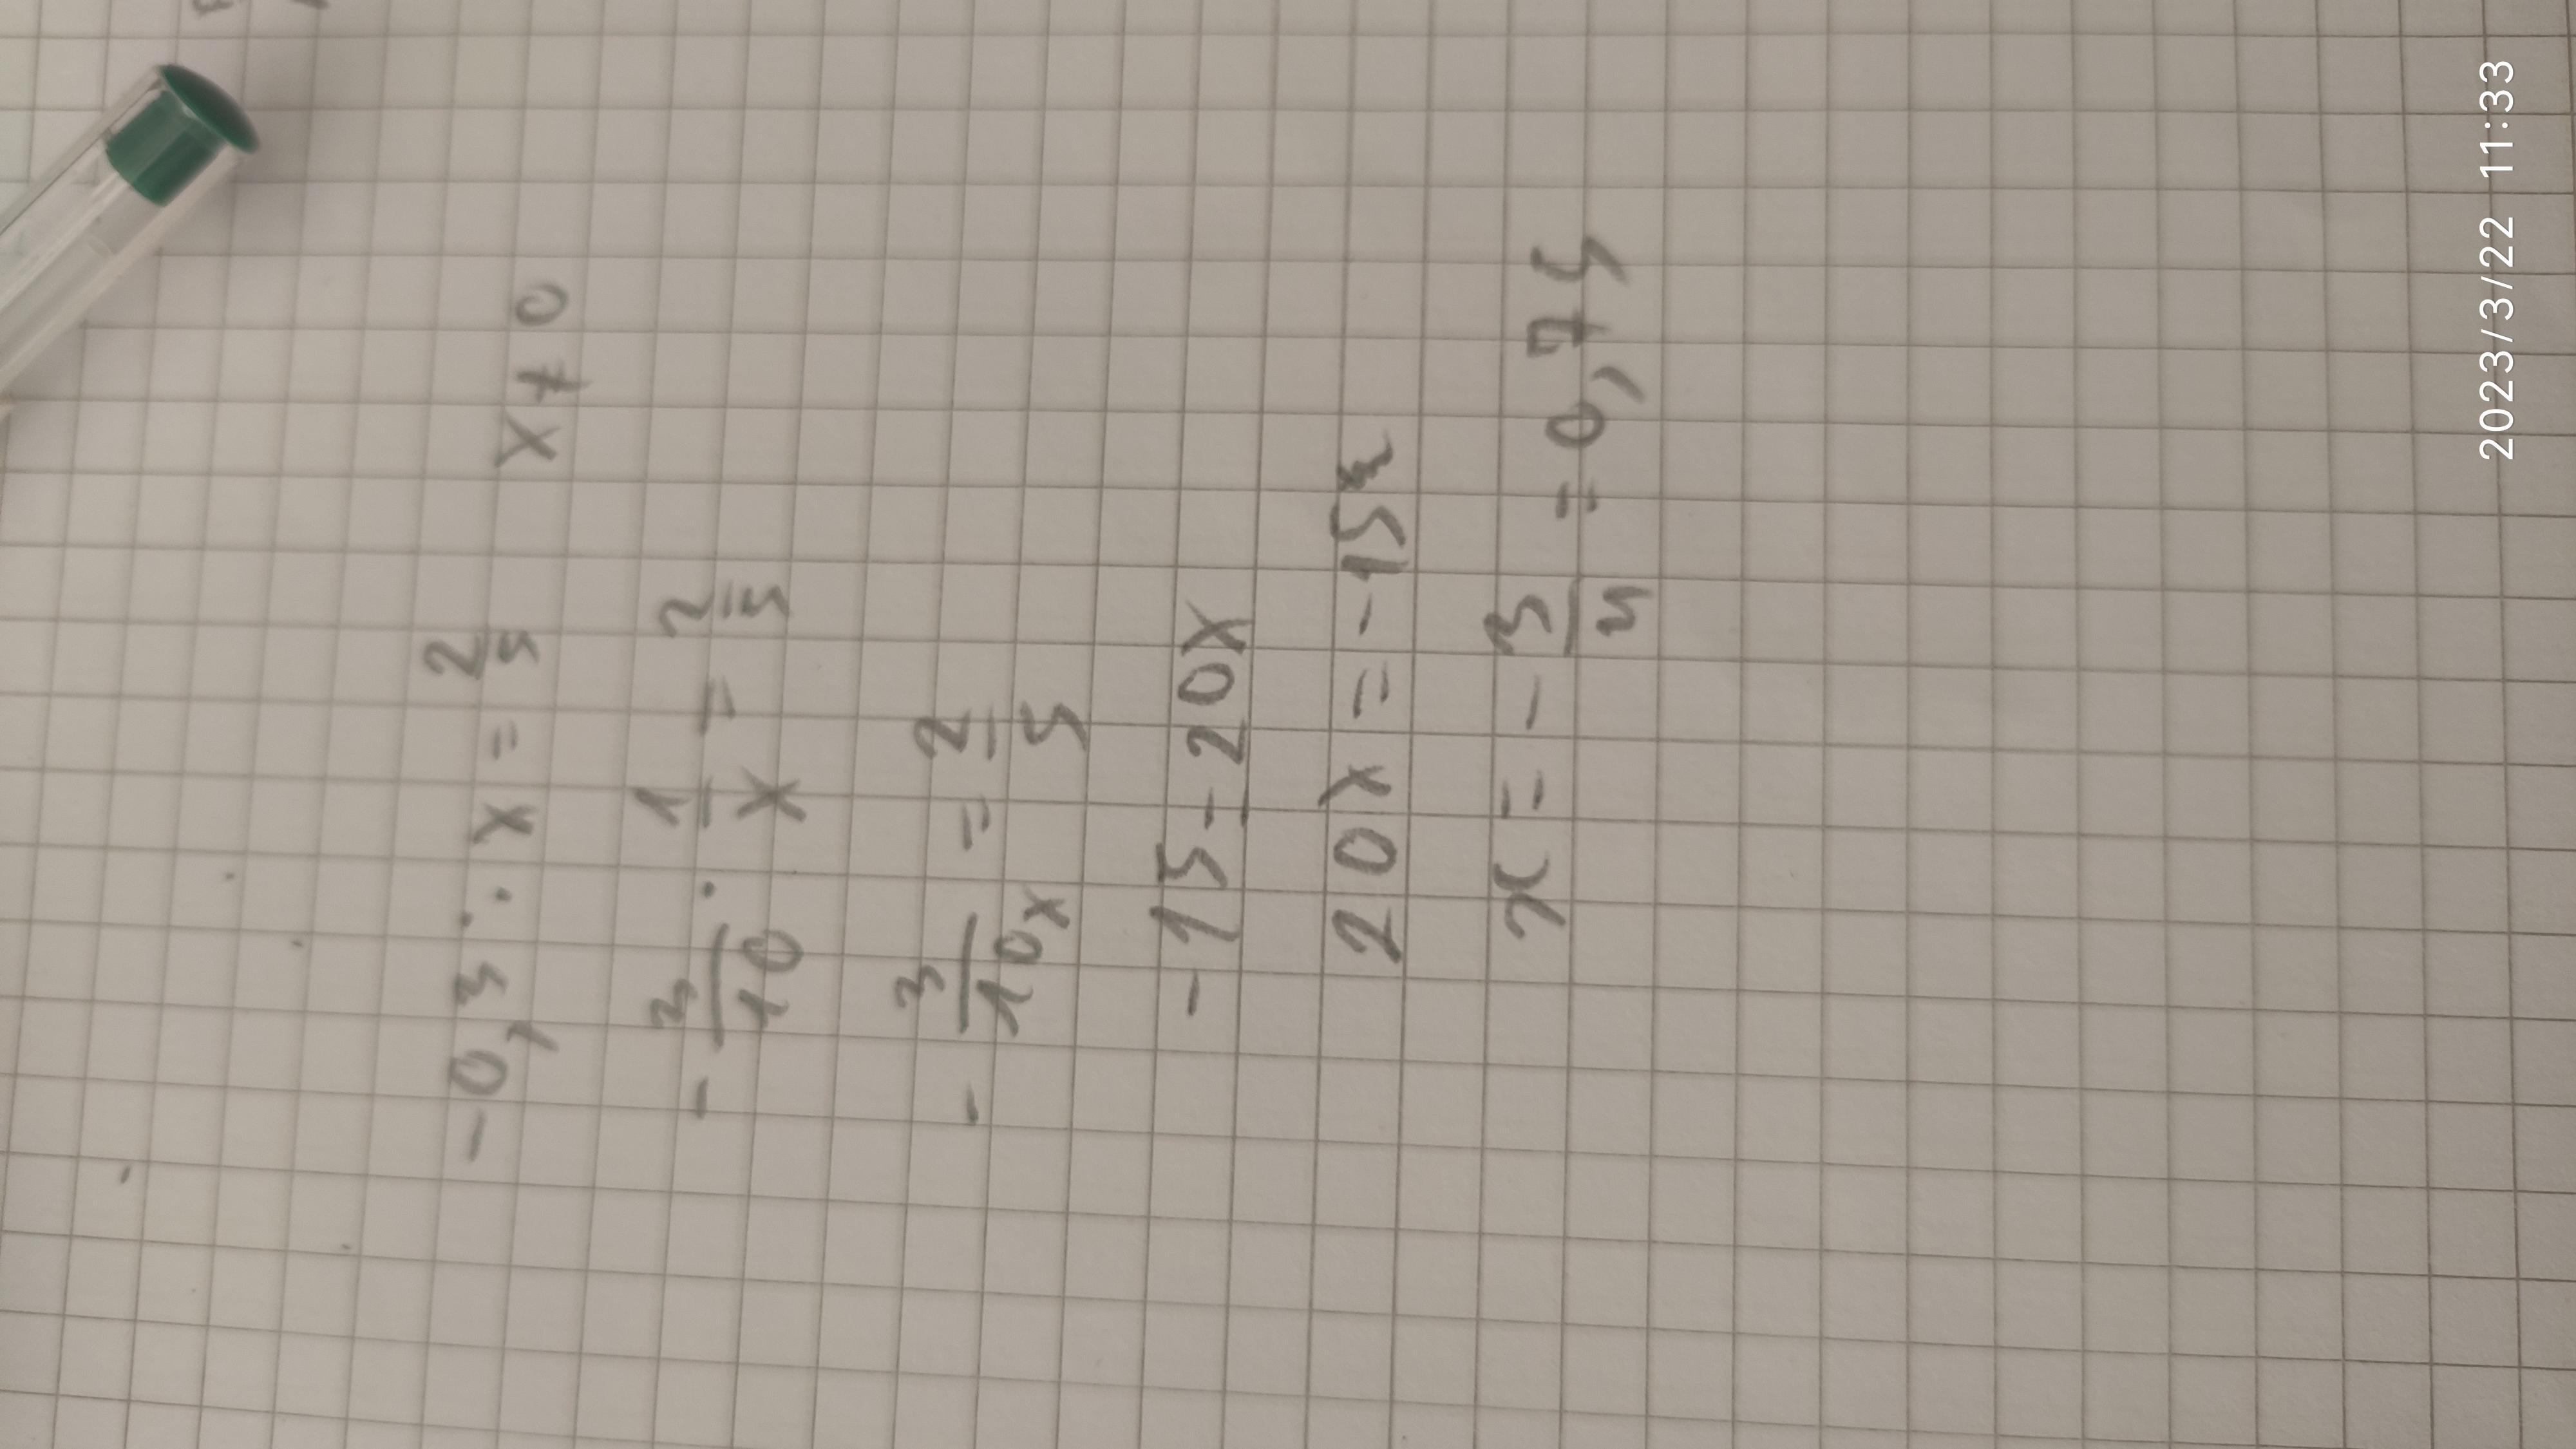 -0,3 : x = 2/5    x ≠ 0
- 3/10 · 1/x = 2/5
- 3/10x = 2/5
-15 = 20x
20x = -15
x = - 3/4 = 0,75
2023/3/22 11:33